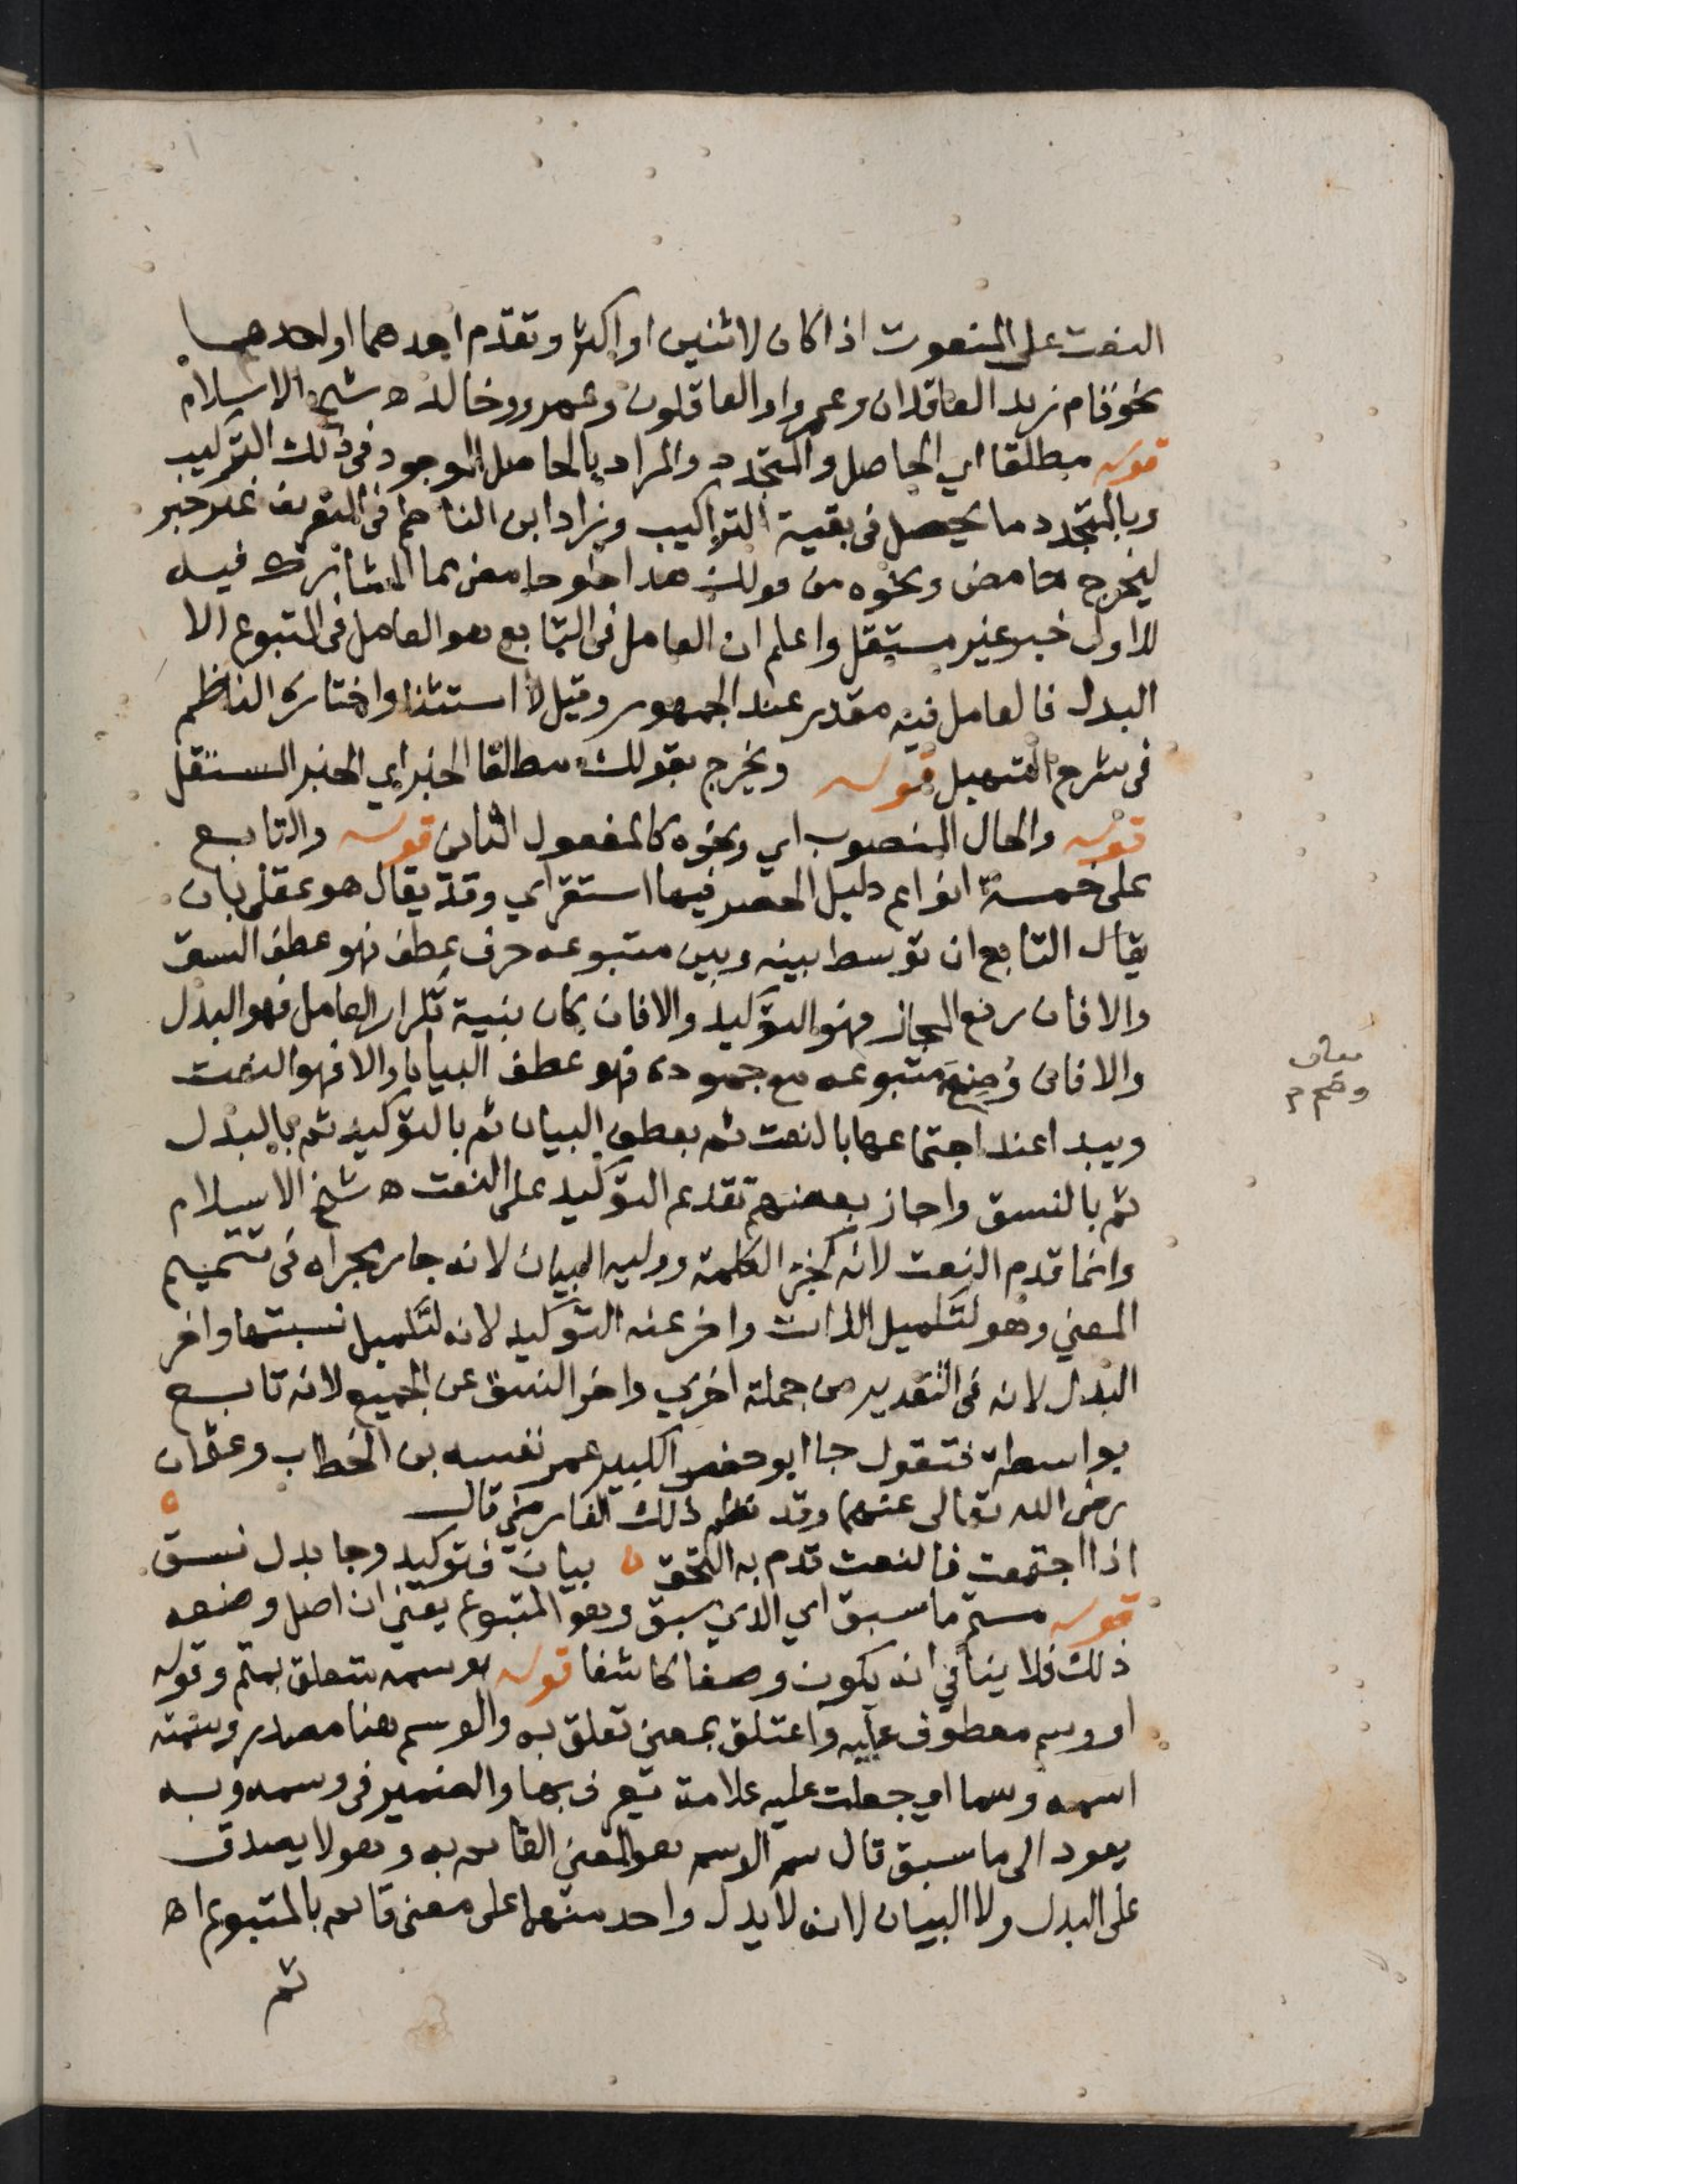 النعت على المنعوت اذا كان لاثنين او اكثر وتقدم احدهما او احدهما
نحو قام زيد العاقلان وعمرو او العاقلون وعمرو وخالد ه شيخ الاسلام
قوله مطلقا اي الحاصل والمتجدد والمراد بالحاصل الموجود في ذلك التركيب
وبالمتجدد ما يحصل في بقية التراكيب وزاد ابن الناظم في التعريف غير خبر
ليخرج حامض ونحوه من قولك هذا حلو حامض مما المشارك فيه
للاول خبر غير مستقل واعلم ان العامل في التابع هو العامل في المتبوع الا
البدل فالعامل فيه مقدر عند الجمهور وقيل لا استثنا واختاره الناظم
في شرح التسهيل قوله ويخرج بقولك مطلقا الخبر اي الخبر المستقل
قوله والحال المنصوب اي ونحوه كالمفعول الثاني قوله والتابع
على خمسة انواع دليل الحصر فيها استقراي وقد يقال هو عقلي بان
يقال التابع ان توسط بينه وبين متبوعه حرف عطف فهو عطف النسق
والا فان رفع المجاز فهو التوكيد والا فان كان بنية تكرار العامل فهو البدل
والا فان وضح متبوعه مع جموده فهو عطف البيان والا فهو النعت
ويبدا عند اجتماعها بالنعت ثم بعطف البيان ثم بالتوكيد ثم بالبدل
ثم بالنسق واجاز بعضهم تقديم التوكيد على النعت ه شيخ الاسلام
وانما قدم النعت لانه كجزء الكلمة ووليه البيان لانه جار مجراه في تتميم
المعني وهو لتكميل الذات واخر عنه التوكيد لانه لتكميل نسبتها واخر
البدل لانه في التقدير من جملة اخري واخر النسق عن الجميع لانه تابع
بواسطة فتقول جا ابو حفص الكبير عمر نفسه بن الخطاب وعثمان
رضي الله تعالى عنهما وقد نظم ذلك الفارضي قال
اذا اجتمعت فالنعت قدم به التحق بيان فتوكيد وجا بدل نسق
قوله متم ما سبق اي الذي سبق وهو المتبوع يعني ان اصل وضعه
ذلك فلا ينافي انه يكون وصفا كاشفا قوله بوسمه متعلق بمتم وقوله
او وسم معطوف عليه واعتلق بمعني تعلق به والوسم هنا مصدر وسمته
اسمه وسما اي جعلت عليه علامة يعرف بها والضمير في وسمه وبه
يعود الى ما سبق قال سم الوسم هو المعني القائم به وهو لا يصدق
على البدل ولا البيان لانه لا يدل واحد منهما على معنى قائم بالمتبوع اه
ثم